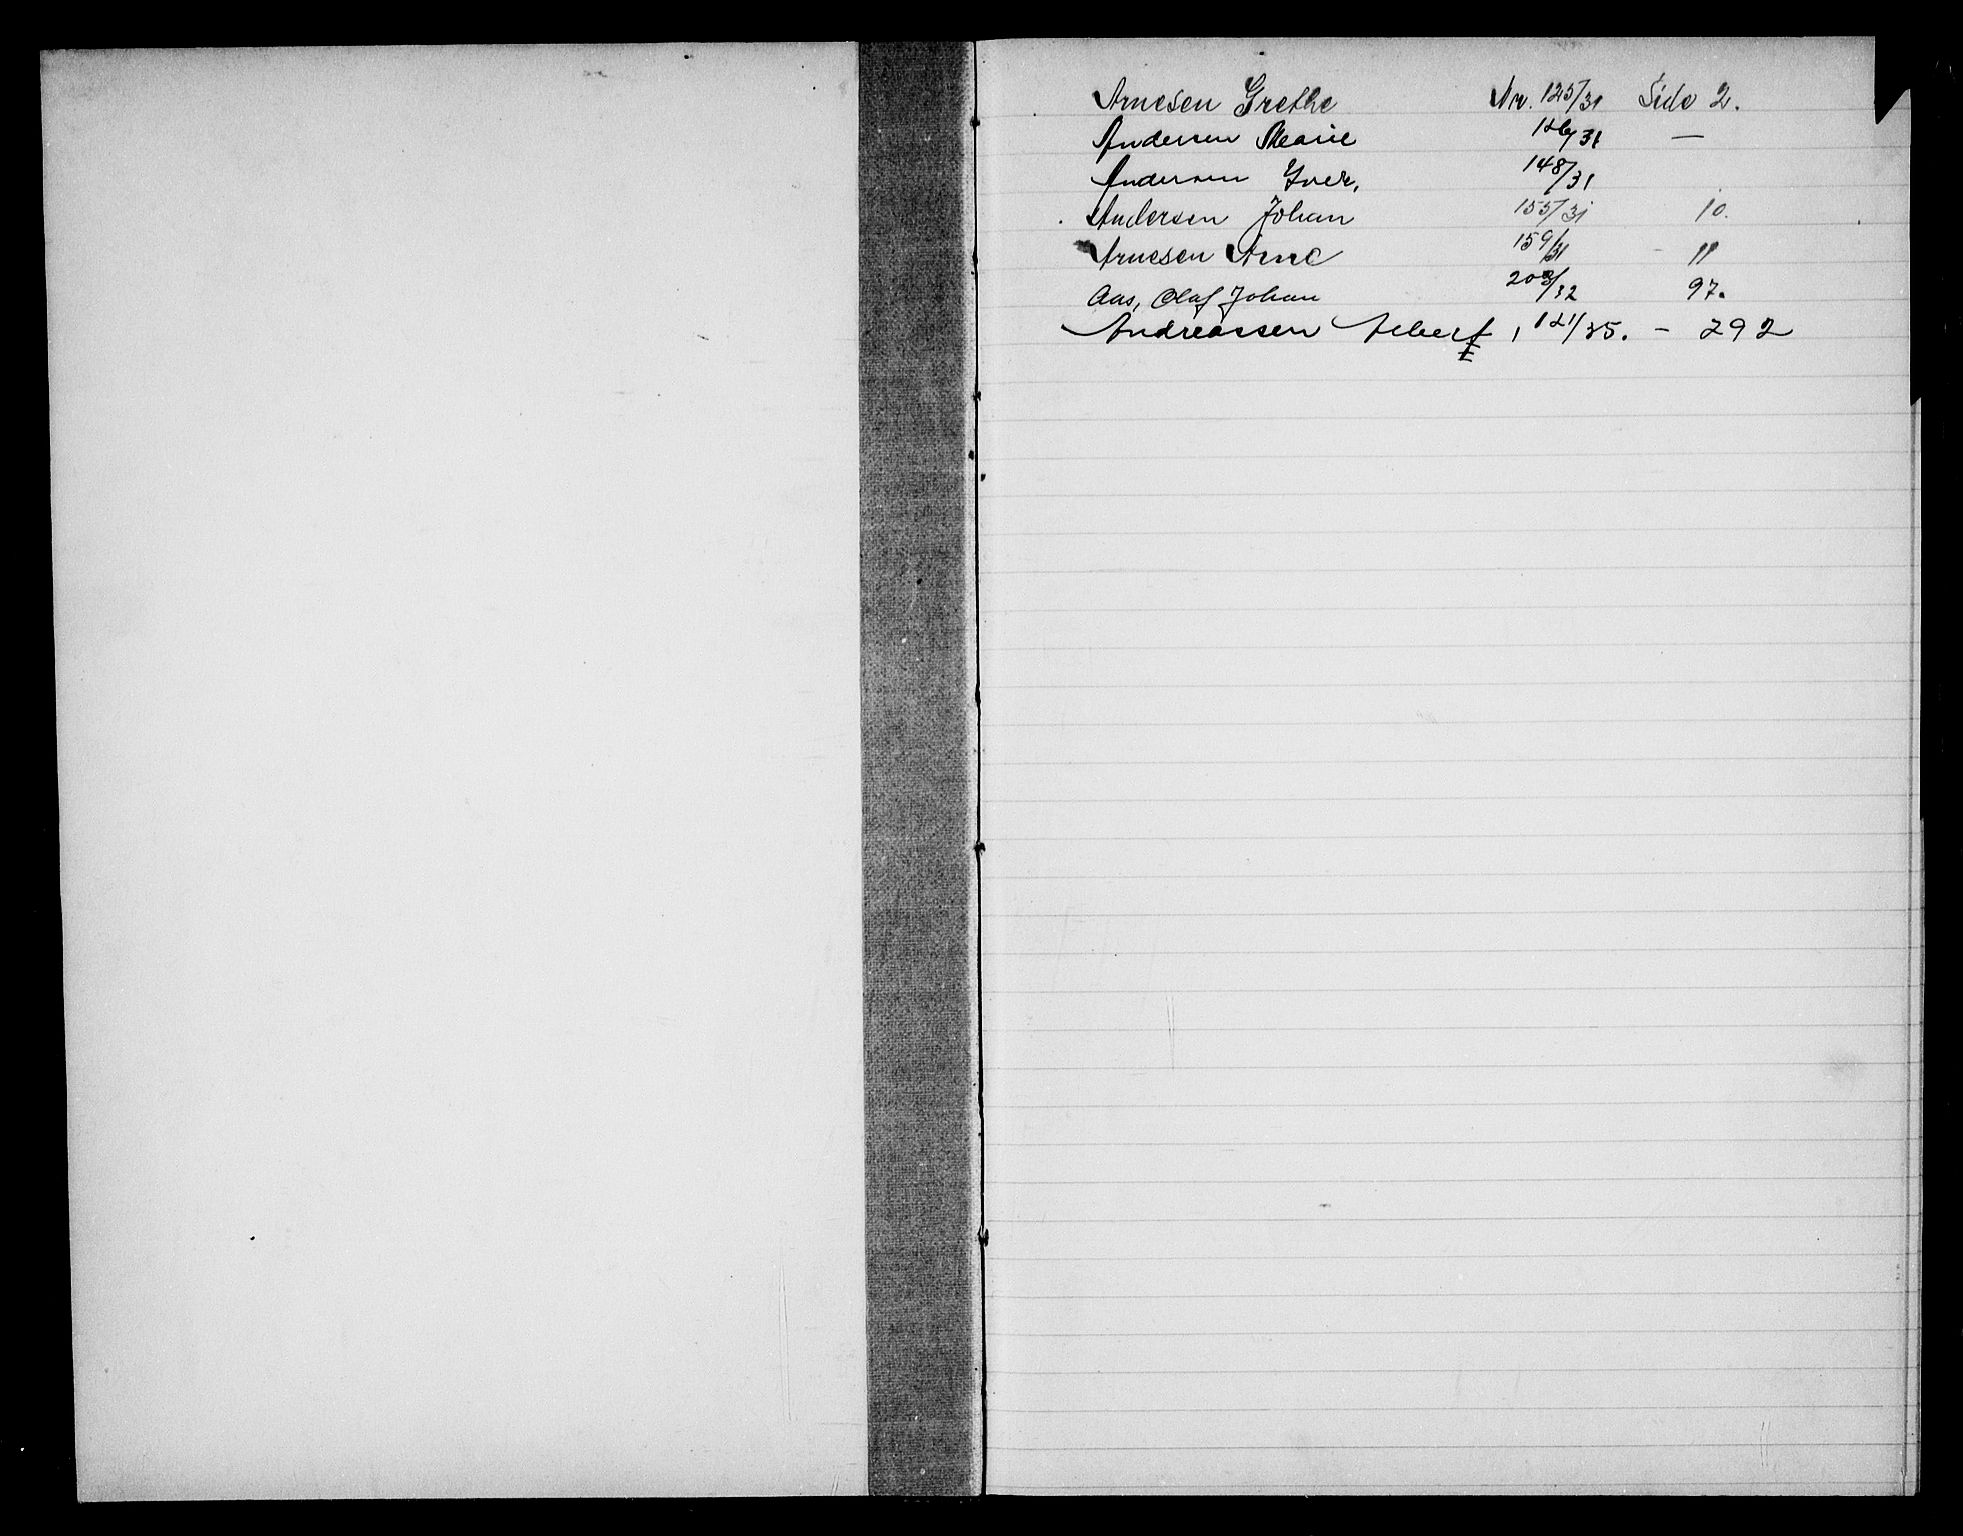 Arnesen Grethe Nr. 125/31 Side 2.
Andersen Marie 126/31 —
Andersen Iver, 148/31
Andersen Johan 155/31 10.
Arnesen Arne 159/31 - 11
Aas, Olaf Johan 203/32 97.
Andreassen Albert, 121/35. - 292